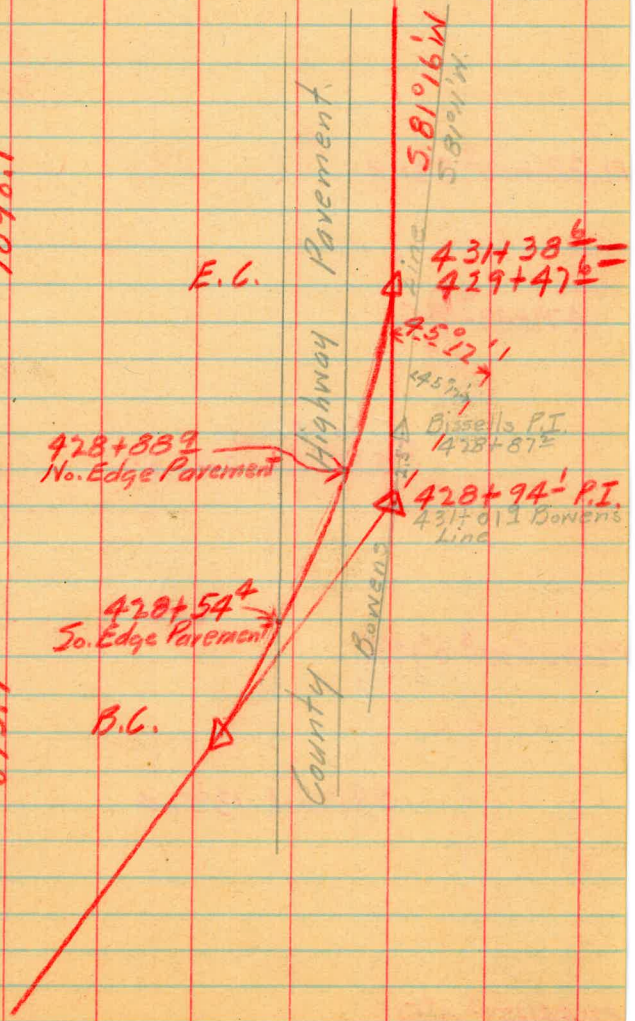 S.81°16'W
S.81°11'W.
County Highway Pavement
Bowens Line
E.C.
431+38 6 =
429+47 6
45° 12'
Bissells P.I.
428+87
2.5'
428+88 9
No. Edge Pavement
428+94 1 P.I.
431+01 9 Bowens
Line
428+54 4
So. Edge Pavement
B.C.